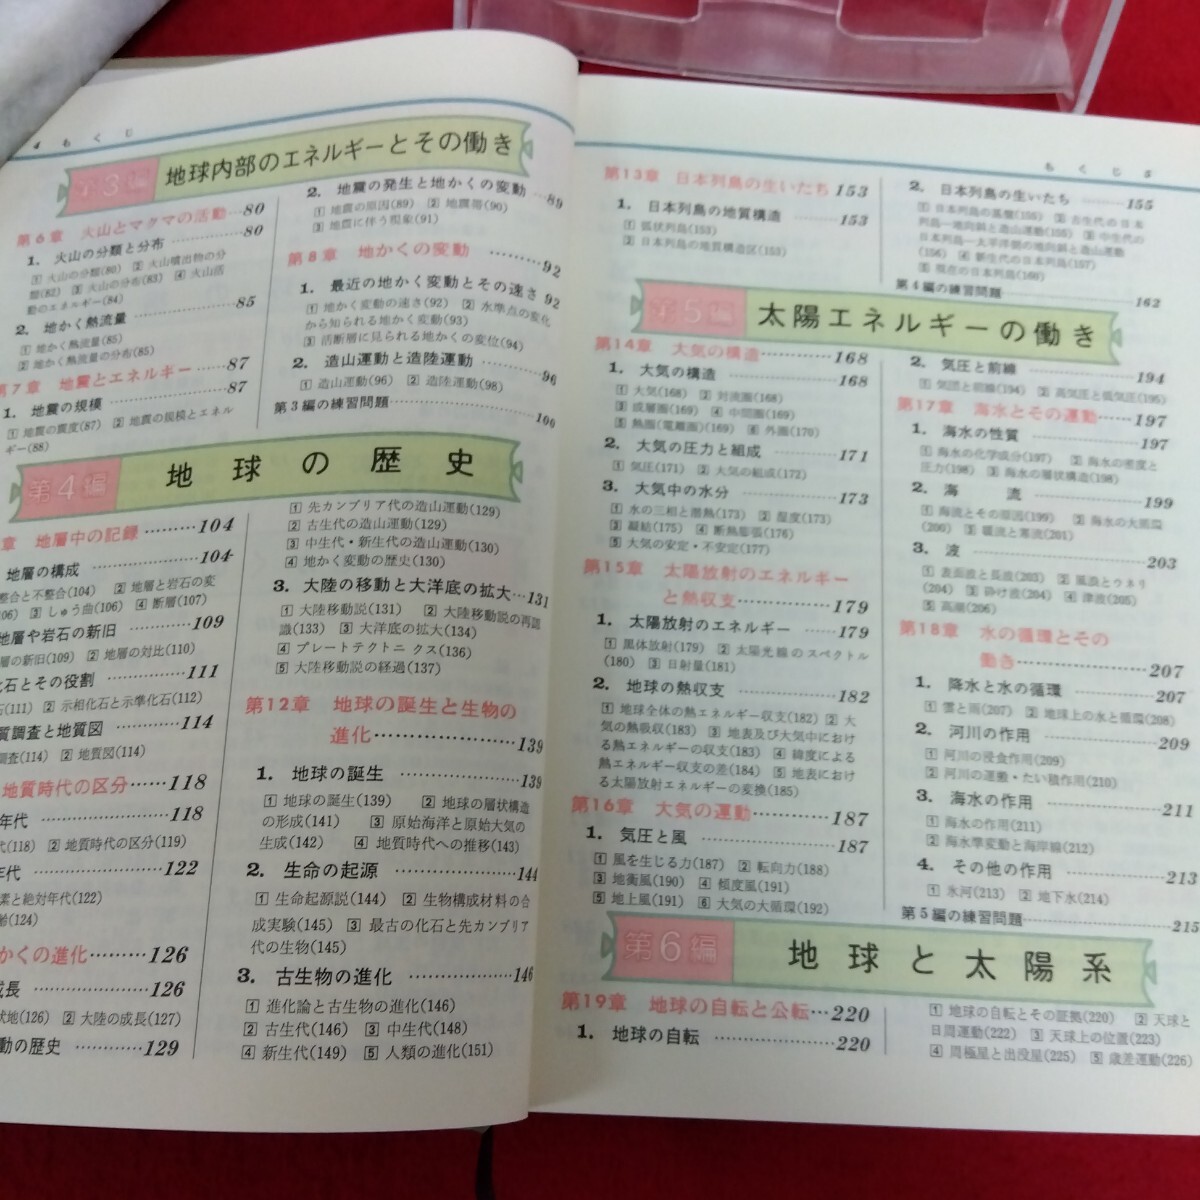 4 もくじ
第3編 地球内部のエネルギーとその働き
第6章 火山とマグマの活動…80
1. 火山の分類と分布…………80
1 火山の分類(80) 2 火山噴出物の分
類(82) 3 火山の分布(83) 4 火山活
動のエネルギー(84)
2. 地かく熱流量…………85
1 地かく熱流量(85)
2 地かく熱流量の分布(85)
第7章 地震とエネルギー……87
1. 地震の規模…………87
1 地震の震度(87) 2 地震の規模とエネル
ギー(88)
2. 地震の発生と地かくの変動…89
1 地震の原因(89) 2 地震帯(90)
3 地震に伴う現象(91)
第8章 地かくの変動………92
1. 最近の地かく変動とその速さ92
1 地かく変動の速さ(92) 2 水準点の変化
から知られる地かく変動(93)
3 活断層に見られる地かくの変位(94)
2. 造山運動と造陸運動………96
1 造山運動(96) 2 造陸運動(98)
第3編の練習問題…………100
第4編 地球の歴史
章 地層中の記録………104
地層の構成…………104
整合と不整合(104) 2 地層と岩石の変
106) 3 しゅう曲(106) 4 断層(107)
地層や岩石の新旧………109
層の新旧(109) 2 地層の対比(110)
化石とその役割…………111
石(111) 2 示相化石と示準化石(112)
質調査と地質図………114
調査(114) 2 地質図(114)
地質時代の区分……118
年代…………118
代(118) 2 地質時代の区分(119)
年代…………122
素と絶対年代(122)
齢(124)
かくの進化………126
成長…………126
状地(126) 2 大陸の成長(127)
動の歴史…………129
1 先カンブリア代の造山運動(129)
2 古生代の造山運動(129)
3 中生代・新生代の造山運動(130)
4 地かく変動の歴史(130)
3. 大陸の移動と大洋底の拡大…131
1 大陸移動説(131) 2 大陸移動説の再認
識(133) 3 大洋底の拡大(134)
4 プレートテクトニクス(136)
5 大陸移動説の経過(137)
第12章 地球の誕生と生物の
進化…………139
1. 地球の誕生…………139
1 地球の誕生(139) 2 地球の層状構造
の形成(141) 3 原始海洋と原始大気の
生成(142) 4 地質時代への推移(143)
2. 生命の起源…………144
1 生命起源説(144) 2 生物構成材料の合
成実験(145) 3 最古の化石と先カンブリア
代の生物(145)
3. 古生物の進化…………146
1 進化論と古生物の進化(146)
2 古生代(146) 3 中生代(148)
4 新生代(149) 5 人類の進化(151)
もくじ 5
第13章 日本列島の生いたち 153
1. 日本列島の地質構造………153
1 弧状列島(153)
2 日本列島の地質構造区(153)
2. 日本列島の生いたち………155
1 日本列島の基盤(155) 2 古生代の日本
列島―地向斜と造山運動(155) 3 中生代の
日本列島―太平洋側の地向斜と造山運動
(156) 4 新生代の日本列島(157)
5 現在の日本列島(160)
第4編の練習問題…………162
第5編 太陽エネルギーの働き
第14章 大気の構造…………168
1. 大気の構造…………168
1 大気(168) 2 対流圏(168)
3 成層圏(169) 4 中間圏(169)
5 熱圏(電離圏)(169) 6 外圏(170)
2. 大気の圧力と組成…………171
1 気圧(171) 2 大気の組成(172)
3. 大気中の水分…………173
1 水の三相と潜熱(173) 2 湿度(173)
3 凝結(175) 4 断熱膨張(176)
5 大気の安定・不安定(177)
第15章 太陽放射のエネルギー
と熱収支…………179
1. 太陽放射のエネルギー……179
1 黒体放射(179) 2 太陽光線のスペクトル
(180) 3 日射量(181)
2. 地球の熱収支…………182
1 地球全体の熱エネルギー収支(182) 2 大
気の熱吸収(183) 3 地表及び大気中におけ
る熱エネルギーの収支(183) 4 緯度による
熱エネルギー収支の差(184) 5 地表におけ
る太陽放射エネルギーの変換(185)
第16章 大気の運動…………187
1. 気圧と風…………187
1 風を生じる力(187) 2 転向力(188)
3 地衡風(190) 4 傾度風(191)
5 地上風(191) 6 大気の大循環(192)
2. 気圧と前線…………194
1 気団と前線(194) 2 高気圧と低気圧(195)
第17章 海水とその運動……197
1. 海水の性質…………197
1 海水の化学成分(197) 2 海水の密度と
圧力(198) 3 海水の層状構造(198)
2. 海流…………199
1 海流とその原因(199) 2 海水の大循環
(200) 3 暖流と寒流(201)
3. 波…………203
1 表面波と長波(203) 2 風浪とウネリ
(204) 3 砕け波(204) 4 津波(205)
5 高潮(206)
第18章 水の循環とその
働き…………207
1. 降水と水の循環…………207
1 雲と雨(207) 2 地球上の水と循環(208)
2. 河川の作用…………209
1 河川の浸食作用(209)
2 河川の運搬・たい積作用(210)
3. 海水の作用…………211
1 海水の作用(211)
2 海水準変動と海岸線(212)
4. その他の作用…………213
1 氷河(213) 2 地下水(214)
第5編の練習問題…………215
第6編 地球と太陽系
第19章 地球の自転と公転…220
1. 地球の自転…………220
1 地球の自転とその証拠(220) 2 天球と
日周運動(222) 3 天球上の位置(223)
4 周極星と出没星(225) 5 歳差運動(226)